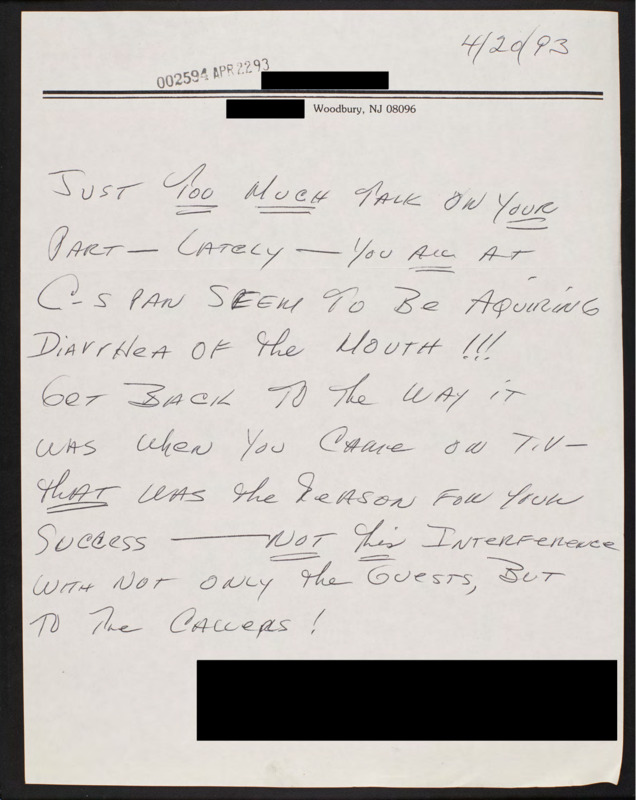 4/20/93
002594 APR 22 93
Woodbury, NJ 08096
JUST TOO MUCH TALK ON YOUR
PART — LATELY — YOU ALL AT
C-SPAN SEEM TO BE AQUIRING
DIARRHEA OF the MOUTH !!!
GET BACK TO The WAY iT
WAS when YOU CAME ON T.V —
thAT WAS the REASON FOR YOUR
SUCCESS — NOT this INTERFERENCE
WITH NOT ONLY the GUESTS, BUT
TO The CALLERS !